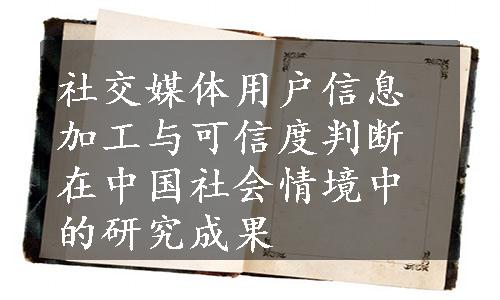 社交媒体用户信息
加工与可信度判断
在中国社会情境中
的研究成果